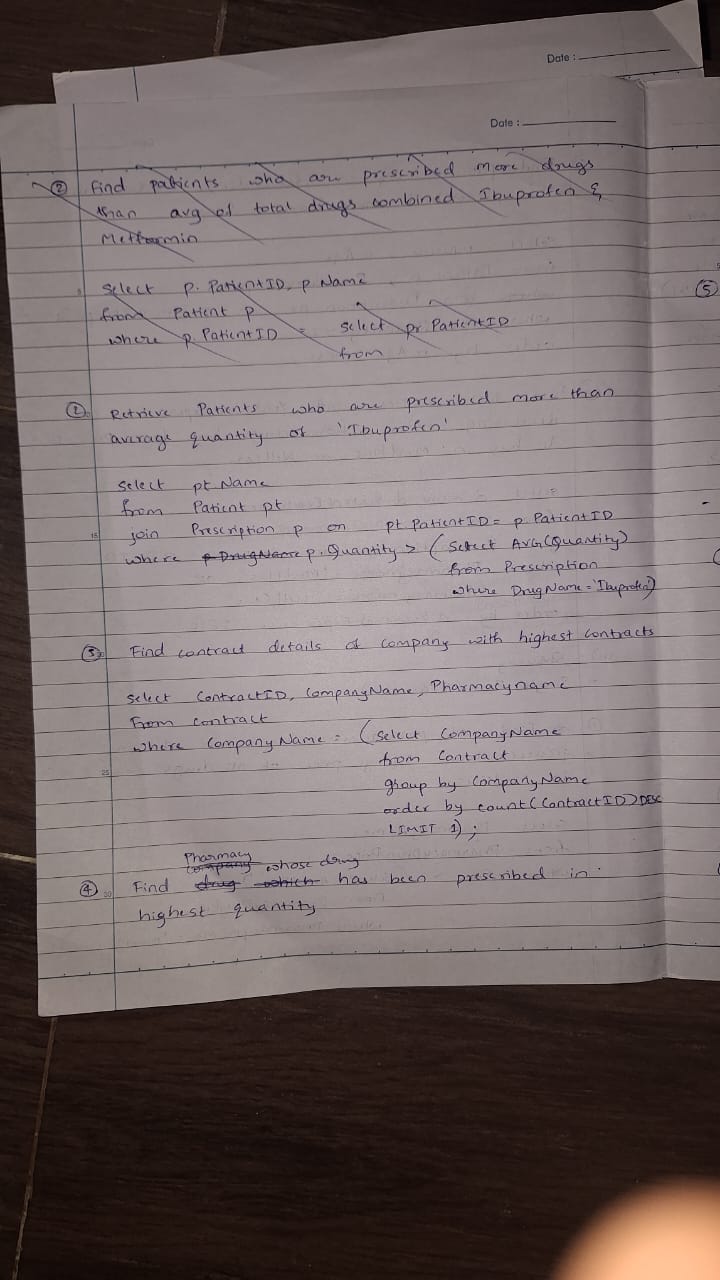 Date :
Date :
② Find patients who are prescribed more drugs
than avg of total drugs combined Ibuprofen &
Metformin
select p. PatientID, p Name
from Patient p
where p PatientID = select pr PatientID
from
② Retrieve Patients who are prescribed more than
average quantity of 'Ibuprofen'
select pt Name
from Patient pt
15 join Prescription p on pt PatientID = p PatientID
where p DrugName p. Quantity > ( Select AVG(Quantity)
from Prescription
where DrugName = 'Ibuprofen')
③ Find contract details of company with highest contracts
select ContractID, CompanyName, Pharmacyname
From contract
where CompanyName = ( select CompanyName
25 from Contract
group by CompanyName
order by count(ContractID) DESC
LIMIT 1) ;
Pharmacy
company whose drug
④ 30 Find drug which has been prescribed in
highest quantity
⑤